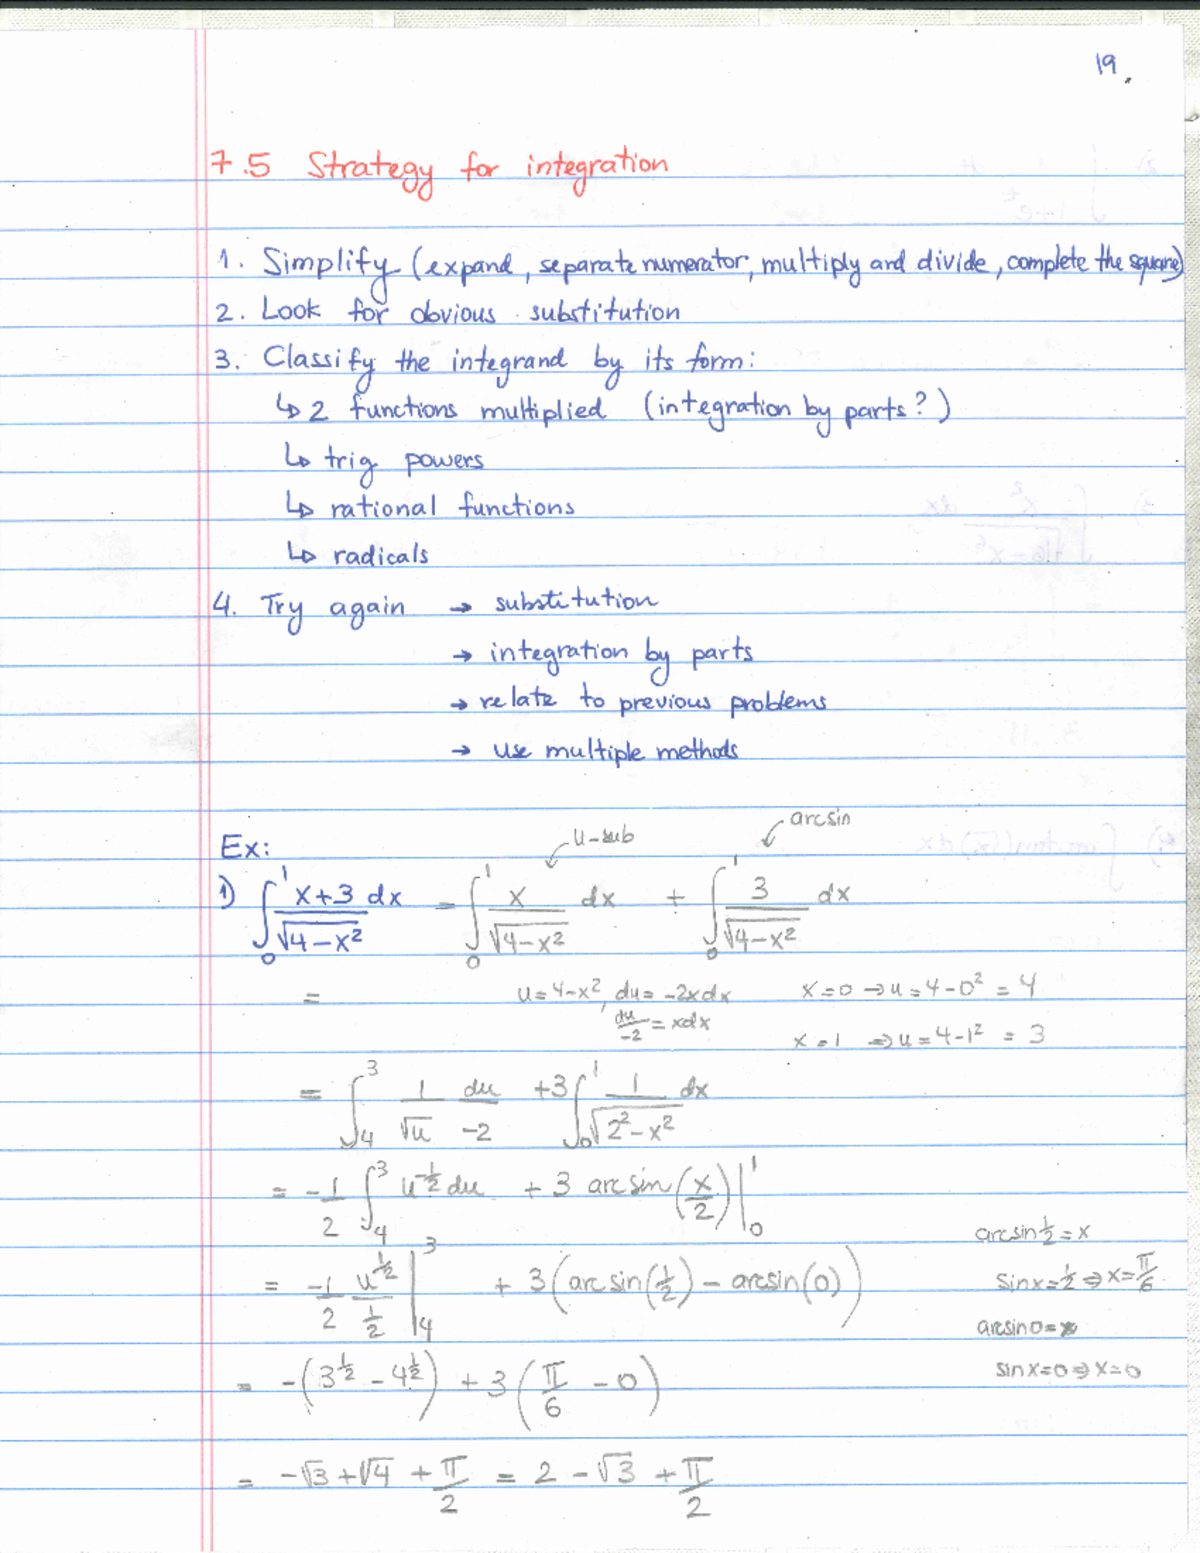 19
7.5 Strategy for integration
1. Simplify (expand, separate numerator, multiply and divide, complete the square)
2. Look for obvious substitution
3. Classify the integrand by its form:
↳ 2 functions multiplied (integration by parts?)
↳ trig powers
↳ rational functions
↳ radicals
4. Try again → substitution
→ integration by parts
→ relate to previous problems
→ use multiple methods
Ex: u-sub arcsin
1) ∫₀¹ (x+3)/√(4-x²) dx = ∫₀¹ x/√(4-x²) dx + ∫₀¹ 3/√(4-x²) dx
= u=4-x², du=-2xdx x=0 → u=4-0²=4
du/-2 = xdx x=1 ⇒ u=4-1²=3
= ∫₄³ 1/√u du/-2 + 3∫₀¹ 1/√(2²-x²) dx
= -1/2 ∫₄³ u^(-1/2) du + 3 arcsin(x/2)|₀¹
arcsin 1/2 = x
= -1/2 u^(1/2)/(1/2)|₄³ + 3(arcsin(1/2) - arcsin(0)) sinx=1/2 ⇒ x=π/6
arcsin0=x
= -(3^(1/2) - 4^(1/2)) + 3(π/6 - 0) sinx=0 ⇒ x=0
= -√3+√4 + π/2 = 2-√3 + π/2